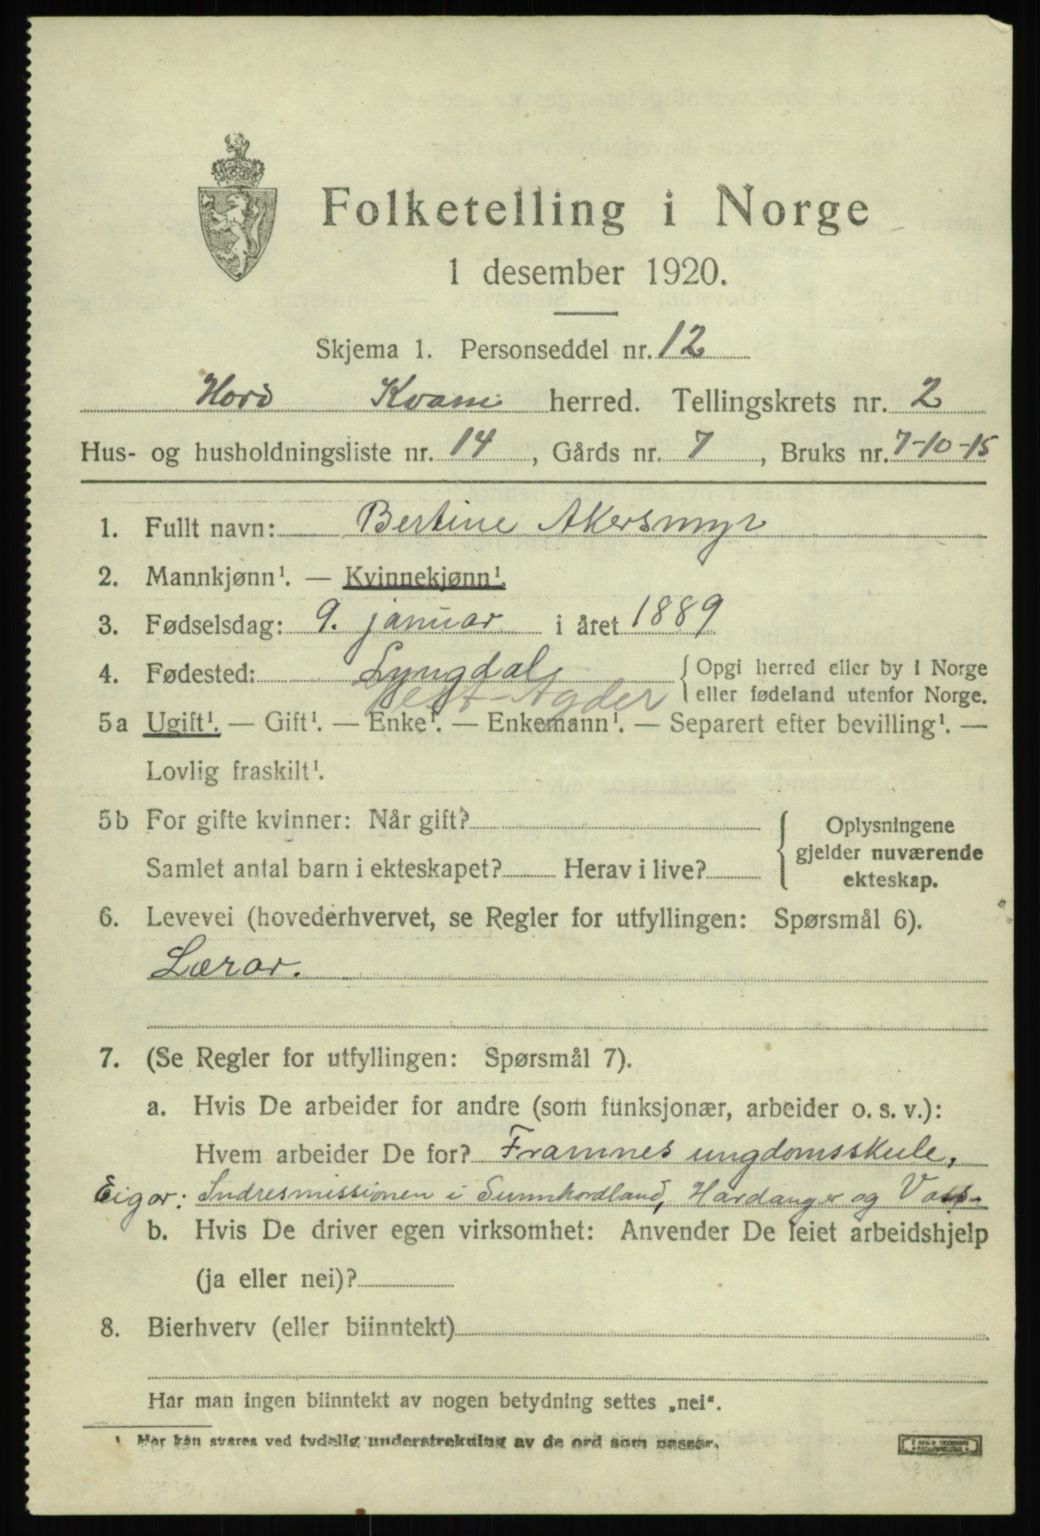 Folketelling i Norge
1 desember 1920.
Skjema 1. Personseddel nr. 12
Hord Kvam herred. Tellingskrets nr. 2
Hus- og husholdningsliste nr. 14, Gårds nr. 7, Bruks nr. 7-10-15
1. Fullt navn: Bertine Akersmyr
2. Mannkjønn¹. — Kvinnekjønn¹.
3. Fødselsdag: 9. januar i året 1889
4. Fødested: Lyngdal, { Opgi herred eller by i Norge
Vest-Agder eller fødeland utenfor Norge.
5a Ugift¹. — Gift¹. — Enke¹. — Enkemann¹. — Separert efter bevilling¹. —
Lovlig fraskilt¹.
5b For gifte kvinner: Når gift? { Oplysningene
gjelder nuværende
Samlet antal barn i ekteskapet? Herav i live? ekteskap.
6. Levevei (hovederhvervet, se Regler for utfyllingen: Spørsmål 6).
Lærar.
7. (Se Regler for utfyllingen: Spørsmål 7).
a. Hvis De arbeider for andre (som funksjonær, arbeider o. s. v.):
Hvem arbeider De for? Framnes ungdomsskule,
Eigar: Indremissionen i Sunnhordland, Hardanger og Voss.
b. Hvis De driver egen virksomhet: Anvender De leiet arbeidshjelp
(ja eller nei)?
8. Bierhverv (eller biinntekt)
Har man ingen biinntekt av nogen betydning settes „nei“.
¹ Her kan svares ved tydelig understrekning av de ord som passer.